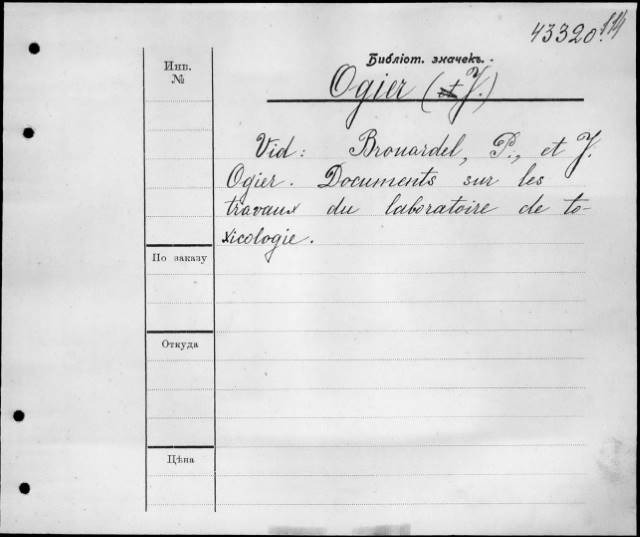 43320.114
Инв.
№
Библіот. значекъ.
Ogier (et J.)
Vid: Brouardel, P., et J.
Ogier. Documents sur les
travaux du laboratoire de to-
xicologie.
По заказу
Откуда
Цѣна